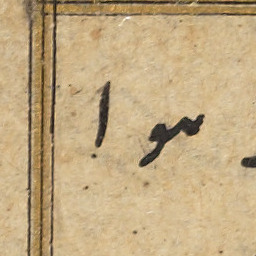 سوا